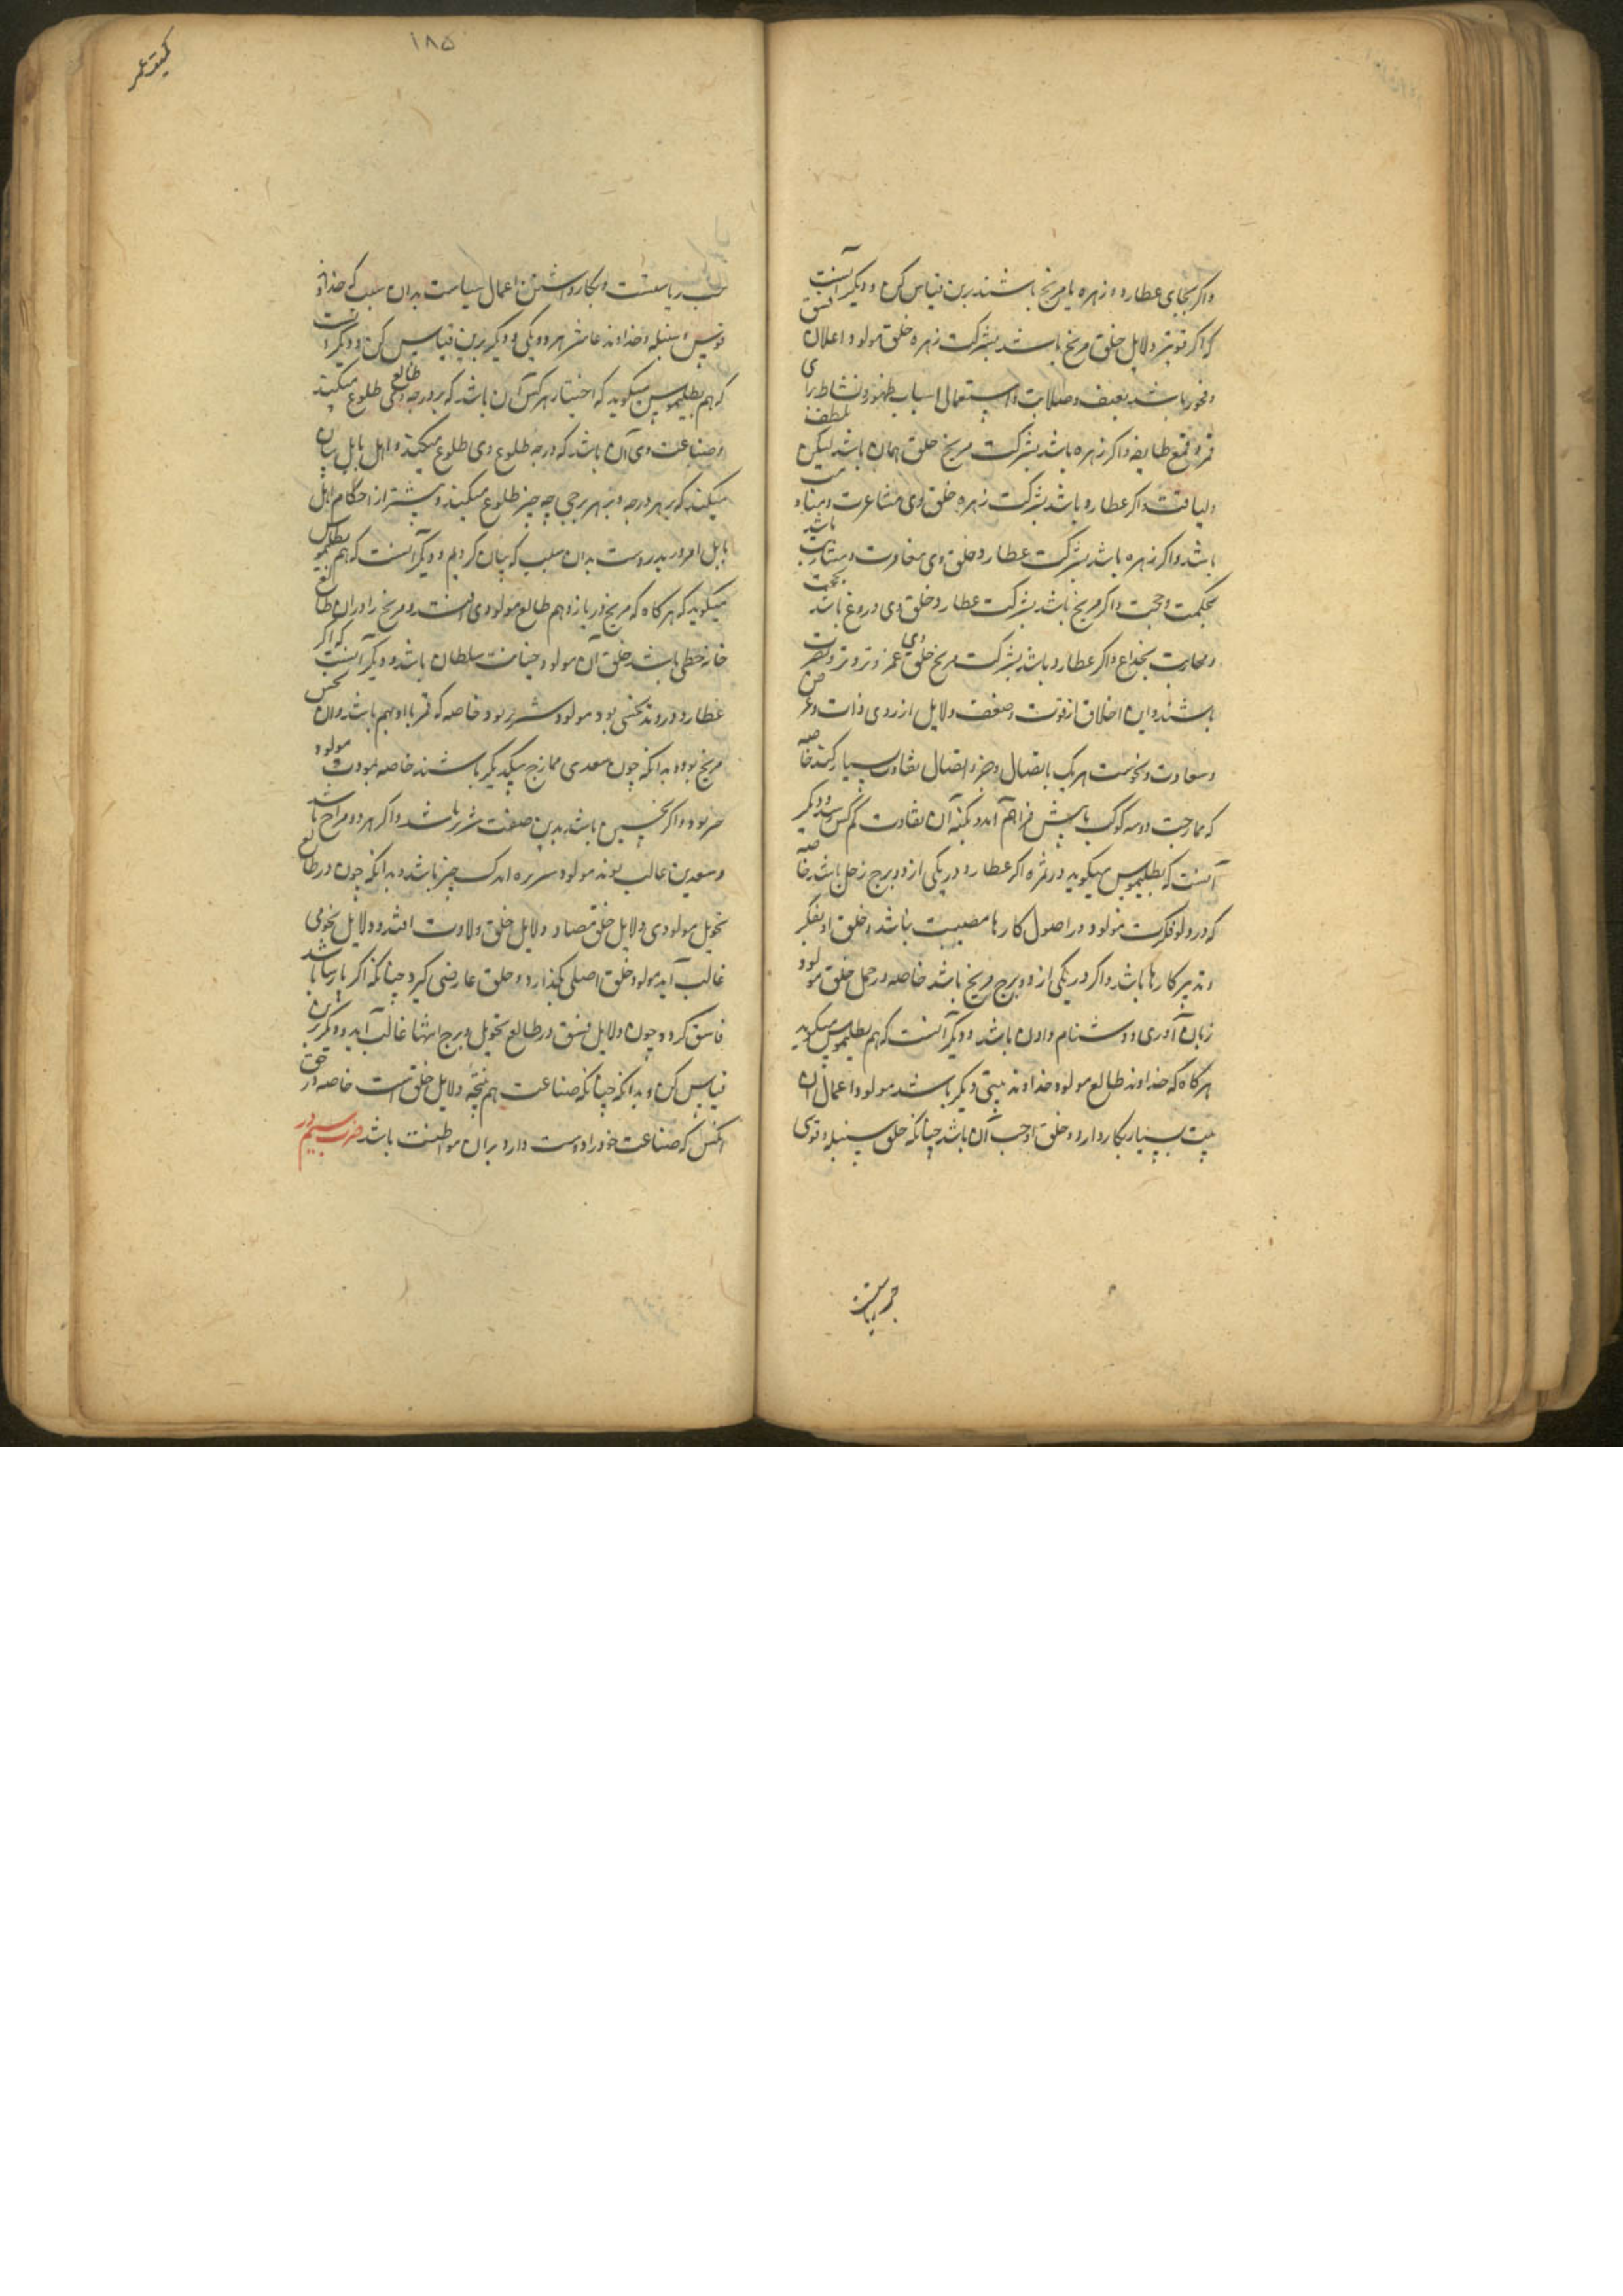 واکر بجای عطارد و زهره یا مریخ باشند برین قیاس کن و دیکر آنست
که اکر قویتر دلایل خلق مریخ باشد بشرکت زهره خلق مولود اعلان فسق
و فجور باشد بعنف و صلابت و استعمال اسباب طهور و نشاط برای
قهر و قمع طایفه واکر زهره باشد بشرکت مریخ خلق همان باشد لیکن بلطف
ولیاقت واکر عطارد باشد بشرکت زهره خلق وی مشاعرت و
باشد واکر زهره باشد بشرکت عطارد خلق وی باشد
بحکمت و حجت واکر مریخ باشد بشرکت عطارد خلق وی دروغ باشد
و محاربت بخداع واکر عطارد باشد بشرکت مریخ خلق وی
باشند و این اخلاق از قوت و ضعف دلایل از روی ذات و عرض
و سعادت و نحوست هر یک باتصال و جز اتصال تفاوت بسیار کند خاصه
که ممازجت دو سه کوکب یا بیش فراهم آید و بکنه آن تفاوت کم کس رسد و دیکر
آنست که بطلیموس میکوید در ثمره اکر عطارد در یکی از دو برج زحل باشد خاصه
که در دلو فکرت مولود در اصول کارها مصیبت باشد و خلق او تفکر
و تدبیر کارها باشد واکر در یکی از دو برج مریخ باشد خاصه در حمل خلق مولود
زبان آوری و دشنام دادن باشد و دیکر آنست که هم بطلیموس میکوید
هرکاه که خداوند طالع مولود خداوند بیتی دیکر باشد مولود اعمال آن
بیت بسیار بکار دارد و خلق او حب آن باشد چنانکه خلق سنبله و قوسی
حب ریاست
۱۸۵
حب ریاستست و بکار داشتن اعمال سیاست بدان سبب که خداوند
قوس و سنبله و خداوند عاشر هر دو یکی و دیکر برین قیاس کن و دیکر آنست
که هم بطلیموس میکوید که اختیار هر کس آن باشد که بر درجه طالع وی طلوع میکند
و صناعت وی آن باشد که درجه طلوع وی طلوع میکند و اهل بابل بیان
میکنند که بهر درجه و بهر برجی چه چیز طلوع میکند و بیشتر از احکام اهل
بابل امروز بدروست بدان سبب که بیان کردیم و دیکر آنست که هم بطلیموس
میکوید که هرکاه که مریخ در یازدهم طالع مولودی افتد و مریخ را در آن طالع
خانه حظی باشد خلق آن مولود خیانت سلطان باشد و دیکر آنست که اکر
عطارد در وتد نحسی بود مولود شریر بود خاصه که قمر با او بهم باشد و آن نحس
مریخ بود و بدانکه چون سعدی ممازج یکدیکر باشند خاصه مولود
خیر بود واکر نحسین باشد بدین صفت شریر باشد واکر هر دو مزاج باشد
و سعدین غالب بوند مولود سریره اندک چیز باشد و بدانکه چون در طالع
تحویل مولودی دلایل خلق مضاد دلایل خلق ولادت افتد و دلایل نجومی
غالب آید مولود خلق اصلی بکذارد و خلق عارضی کیرد چنانکه اکر پارسا باشد
فاسق کردد چون دلایل فسق در طالع تحویل و برج انتها غالب آید و دیکر برین
قیاس کن و بدانکه چنانکه صناعت هم نتیجه دلایل خلق است خاصه در حق
آنکس که صناعت خود را دوست دارد بران مواظبت باشد ضرب سیم در
کمیت عمر